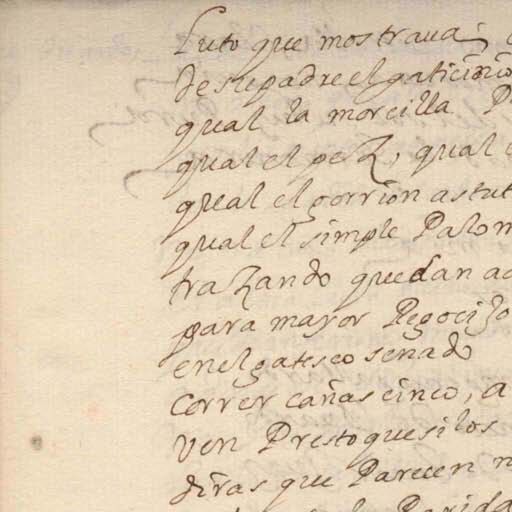 luto que mostraua;
de su padre el gaticidio
qual la morcilla
qual el peZ, qual
qual el gorrion astut
qual el simple Palom
traZando quedan
para mayor Regocijo
en el gatesco senado
Correr cañas cinco, a
ven Presto que si los
diras que Parecen n